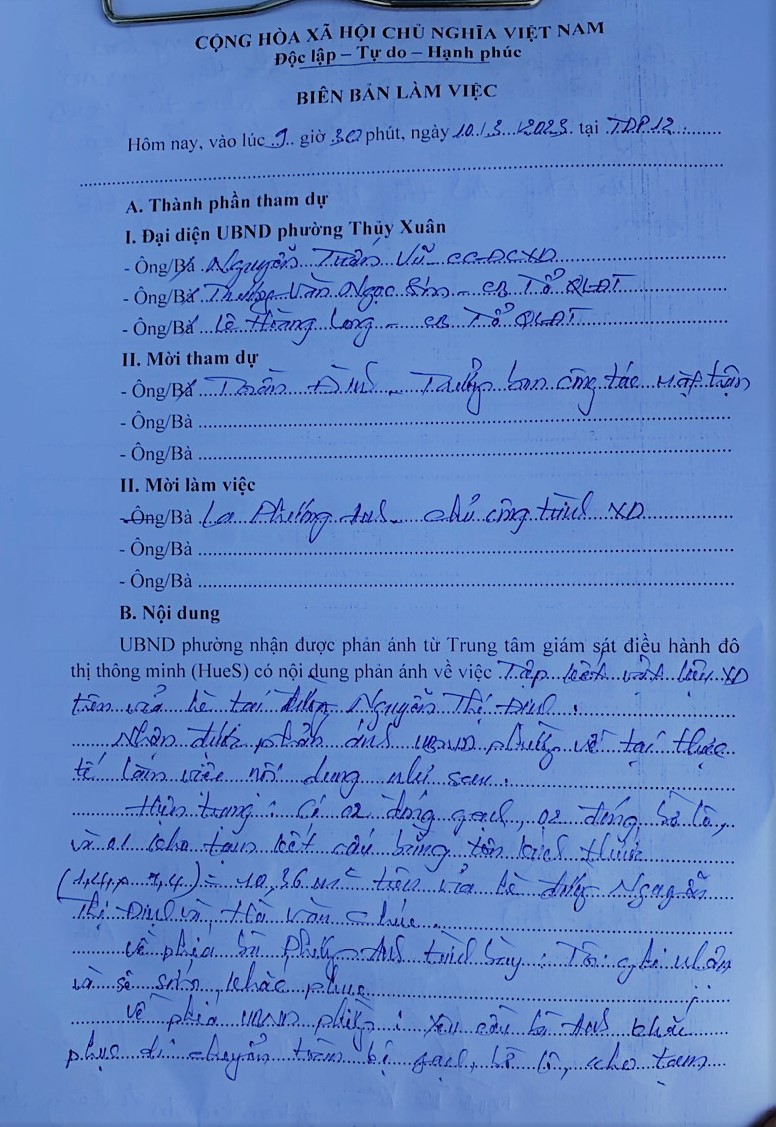 CỘNG HÒA XÃ HỘI CHỦ NGHĨA VIỆT NAM
Độc lập – Tự do – Hạnh phúc
BIÊN BẢN LÀM VIỆC
Hôm nay, vào lúc 9 giờ 30 phút, ngày 10/3/2023 tại TDP 12
A. Thành phần tham dự
I. Đại diện UBND phường Thủy Xuân
- Ông/Bà Nguyễn Tuấn Vũ CC-ĐCXD
- Ông/Bà Trương Văn Ngọc - CB Tổ QLĐT
- Ông/Bà Lê Hoàng Long - CB Tổ QLĐT
II. Mời tham dự
- Ông/Bà Trần Đình - Trưởng ban công tác mặt trận
- Ông/Bà
- Ông/Bà
II. Mời làm việc
- Ông/Bà La Phương Anh - chủ công trình XD
- Ông/Bà
- Ông/Bà
B. Nội dung
UBND phường nhận được phản ánh từ Trung tâm giám sát điều hành đô
thị thông minh (HueS) có nội dung phản ánh về việc Tập kết vật liệu XD
trên vỉa hè tại đường Nguyễn Thị Định.
Nhận được phản ánh UBND phường về tại thực
tế làm việc nội dung như sau:
Hiện trạng: Có 02 đống gạch, 02 đống bờ lô,
và 01 kho tạm kết cấu bằng tôn kích thước
(1,4 x 7,4) = 10,36 m² trên vỉa hè đường Nguyễn
Thị Định và Hà Văn Chúc.
Về phía bà Phương Anh trình bày: Tôi ghi nhận
và sẽ sớm khắc phục.
Về phía UBND phường: Yêu cầu bà Anh khắc
phục di chuyển toàn bộ gạch, bờ lô, kho tạm